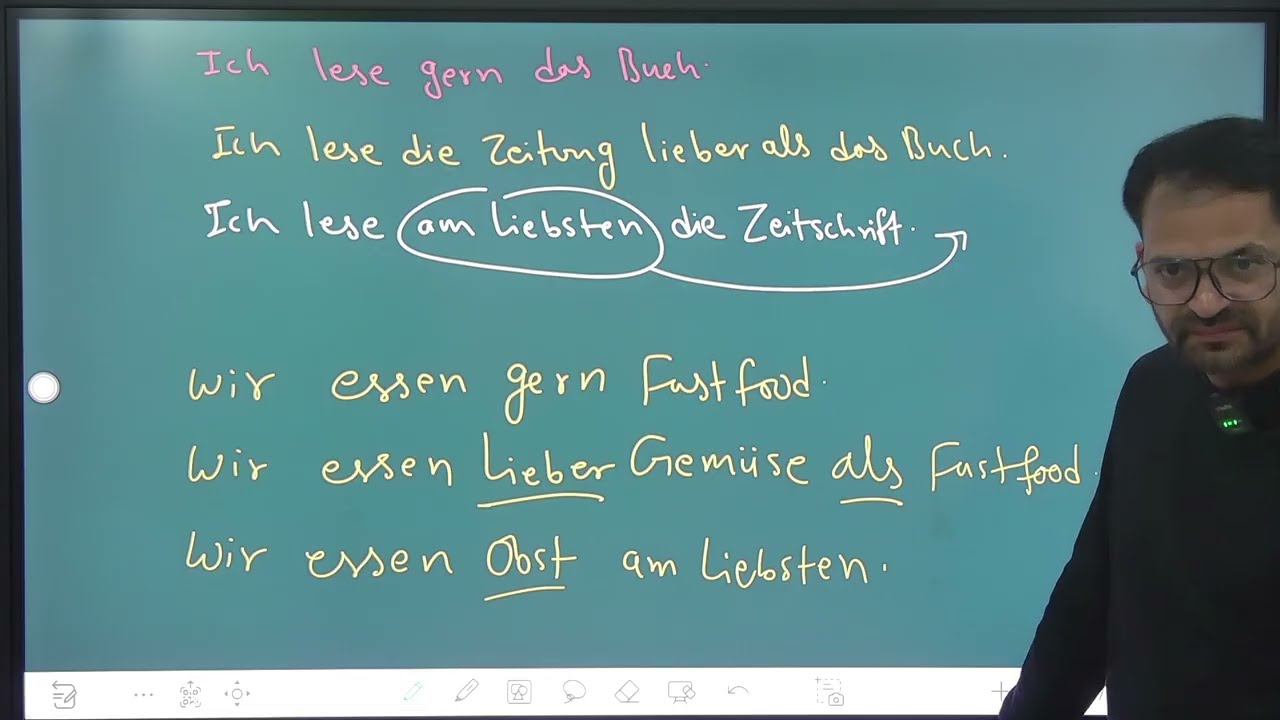 Ich lese gern das Buch.
Ich lese die Zeitung lieber als das Buch.
Ich lese am liebsten die Zeitschrift.
Wir essen gern Fastfood.
Wir essen Lieber Gemüse als Fastfood.
Wir essen Obst am Liebsten.